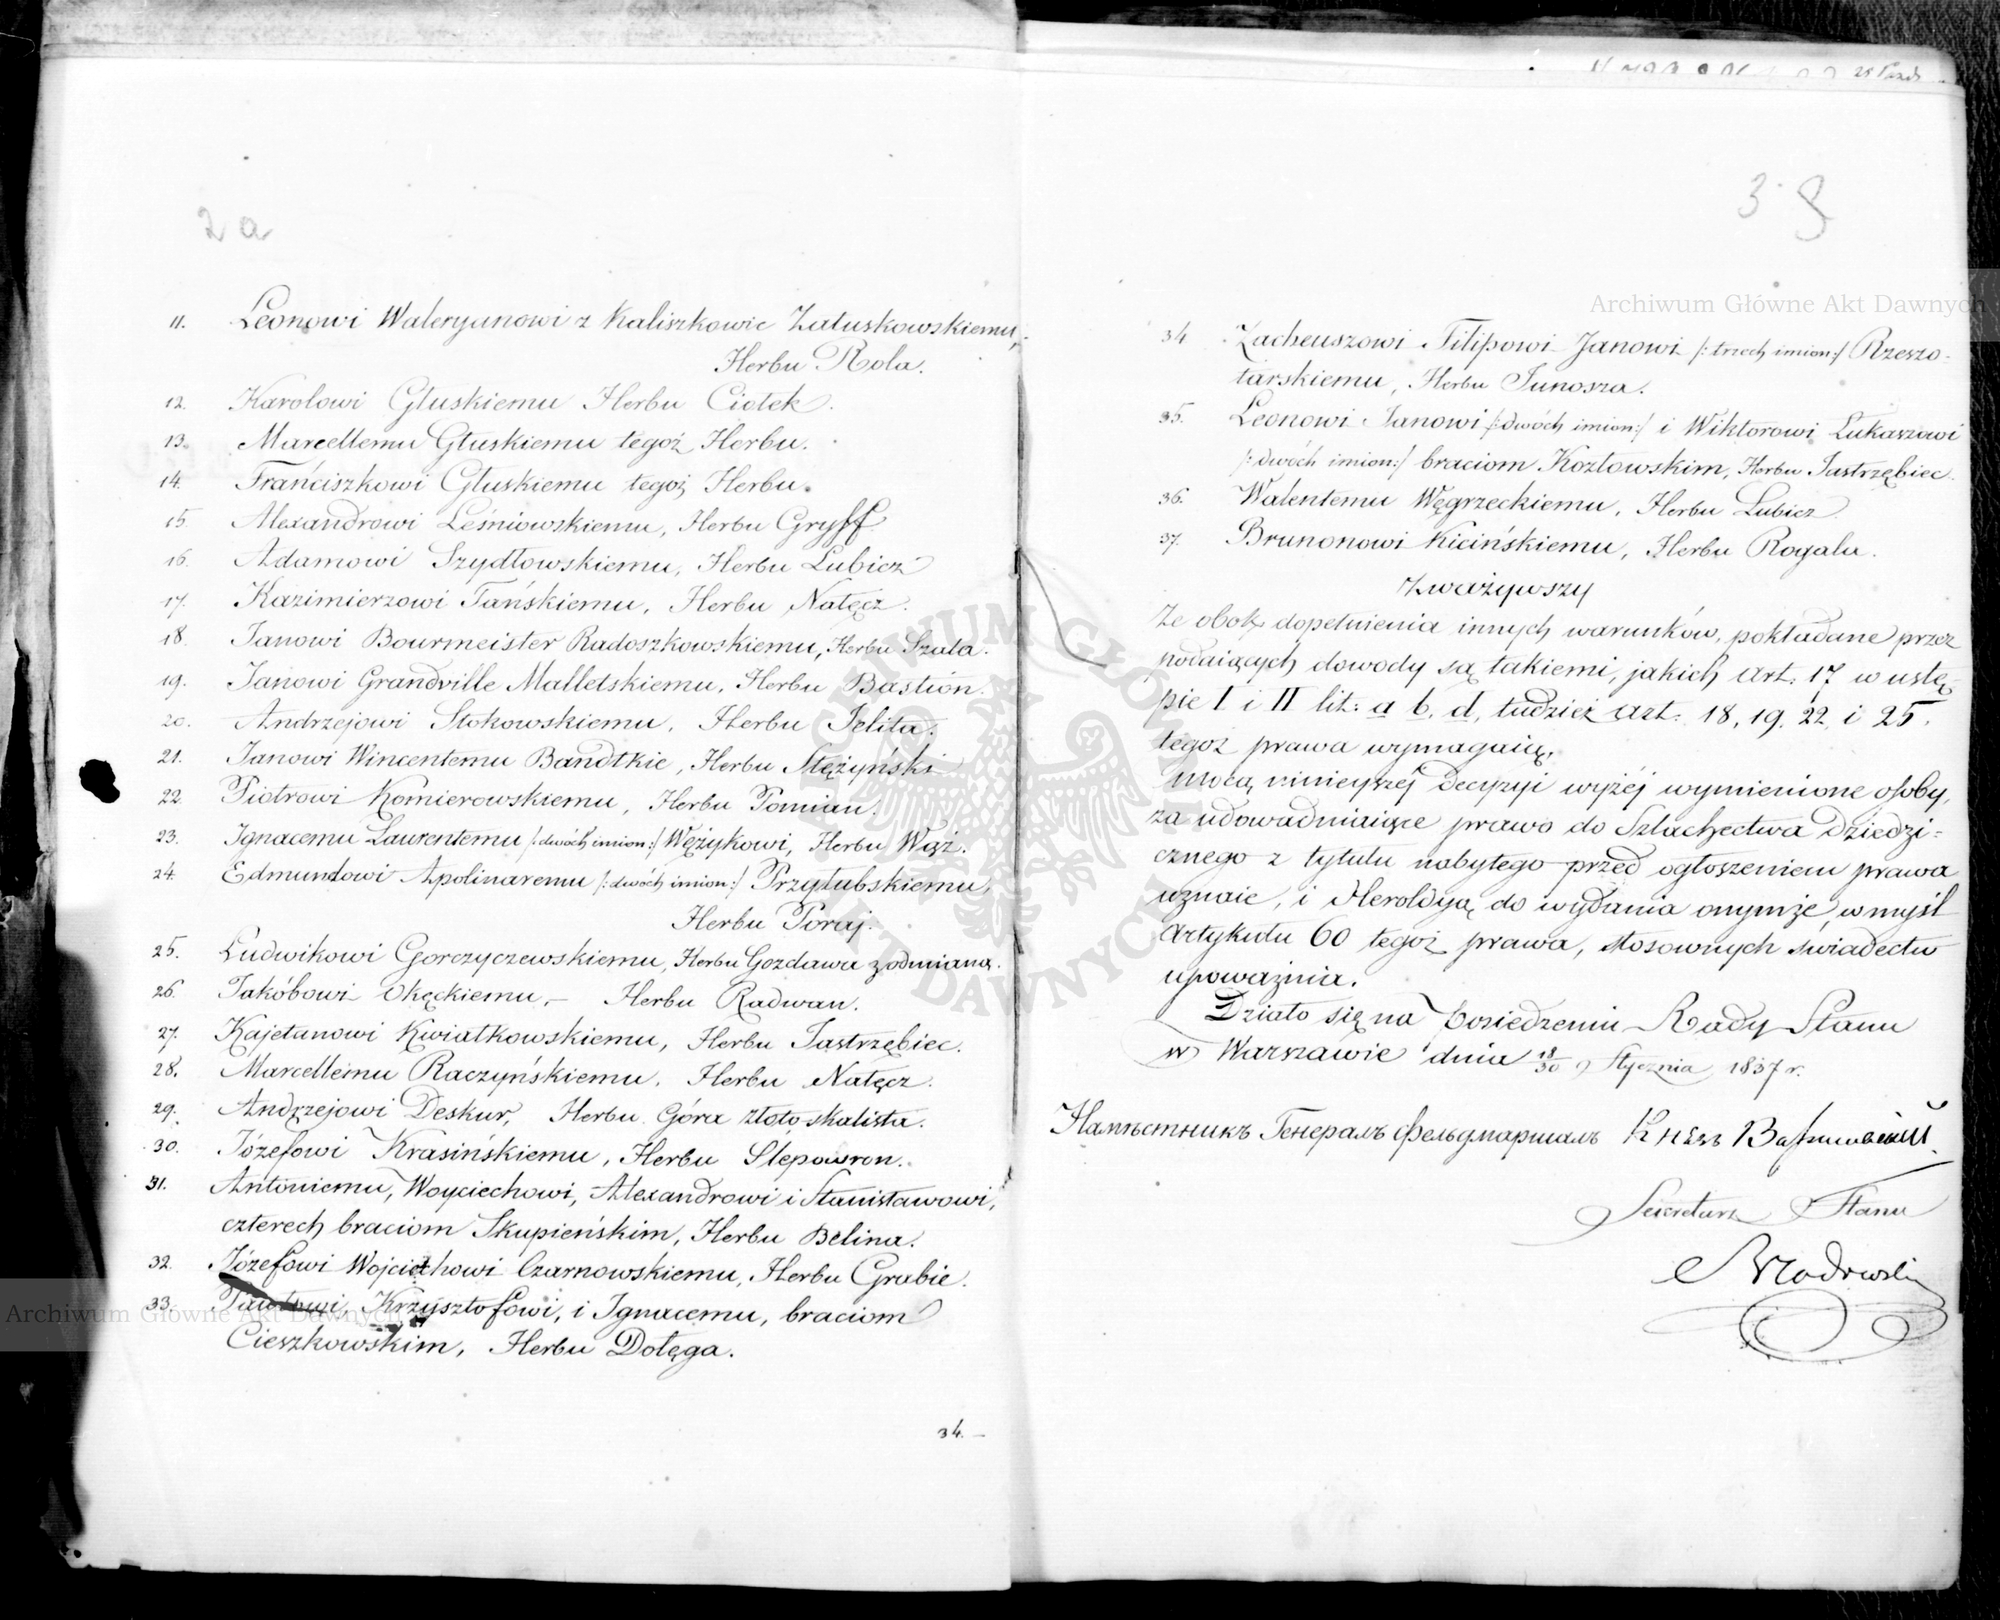 2a
11. Leonowi Waleryanowi z Kaliszkowic Załuskowskiemu,
Herbu Rola.
12. Karolowi Głuskiemu Herbu Ciołek.
13. Marcellemu Głuskiemu tegoż Herbu.
14. Franciszkowi Głuskiemu tegoż Herbu.
15. Alexandrowi Leśniowskiemu, Herbu Gryff
16. Adamowi Szydłowskiemu, Herbu Lubicz
17. Kazimierzowi Tańskiemu, Herbu Nałęcz.
18. Janowi Bourmeister Radoszkowskiemu, Herbu Szala.
19. Janowi Grandville Malletskiemu, Herbu Bastion.
20. Andrzejowi Stokowskiemu, Herbu Jelita.
21. Janowi Wincentemu Bandtkie, Herbu Stężyński
22. Piotrowi Komierowskiemu, Herbu Pomian.
23. Ignacemu Laurentemu /:dwóch imion:/ Wężykowi, Herbu Wąż.
24. Edmundowi Apolinaremu /:dwóch imion:/ Przyłubskiemu,
Herbu Poraj.
25. Ludwikowi Gorczyczewskiemu, Herbu Gozdawa z odmianą.
26. Jakóbowi Okęckiemu, – Herbu Radwan.
27. Kajetanowi Kwiatkowskiemu, Herbu Jastrzębiec.
28. Marcellemu Raczyńskiemu, Herbu Nałęcz.
29. Andrzejowi Deskur, Herbu Góra złoto-skalista.
30. Józefowi Krasińskiemu, Herbu Ślepowron.
31. Antoniemu, Woyciechowi, Alexandrowi i Stanisławowi,
czterech braciom Skupieńskim, Herbu Belina.
32. Józefowi Wojciechowi Czarnowskiemu, Herbu Grabie.
33. Pawłowi, Krzysztofowi, i Ignacemu, braciom
Cieszkowskim, Herbu Dołęga.
34. –
25 Paźdz
3
34 Zacheuszowi Filipowi Janowi /:trzech imion:/ Rzeszo-
tarskiemu, Herbu Junosza.
35. Leonowi Janowi /:dwóch imion:/ i Wiktorowi Łukaszowi
/:dwóch imion:/ braciom Kozłowskim, Herbu Jastrzębiec.
36. Walentemu Węgrzeckiemu, Herbu Lubicz
37. Brunonowi Kicińskiemu, Herbu Rogala.
Zważywszy
Że obok dopełnienia innych warunków, pokładane przez
podaiących dowody są takiemi, jakich Art: 17 w ustę-
pie I i II lit: a b. d, tudzież Art: 18, 19, 22, i 25.
tegoż prawa wymagaią,
Mocą ninieyszej Decyzyi wyżéj wymienione osoby,
za udowadniaiące prawo do Szlachectwa Dziedzi-
cznego z tytułu nabytego przed ogłoszeniem prawa
uznaie, i Heroldyą do wydania onymże, w myśl
Artykułu 60 tegoż prawa, stosownych świadectw
upoważnia.
Działo się na Posiedzeniu Rady Stanu
w Warszawie dnia 18/30 Stycznia 1837 r.
Намѣстникъ Генералъ Фельдмаршалъ Князь Варшавскій
Sekretarz Stanu
Archiwum Główne Akt Dawnych
Archiwum Główne Akt Dawnych
ARCHIWUM GŁÓWNE AKT DAWNYCH